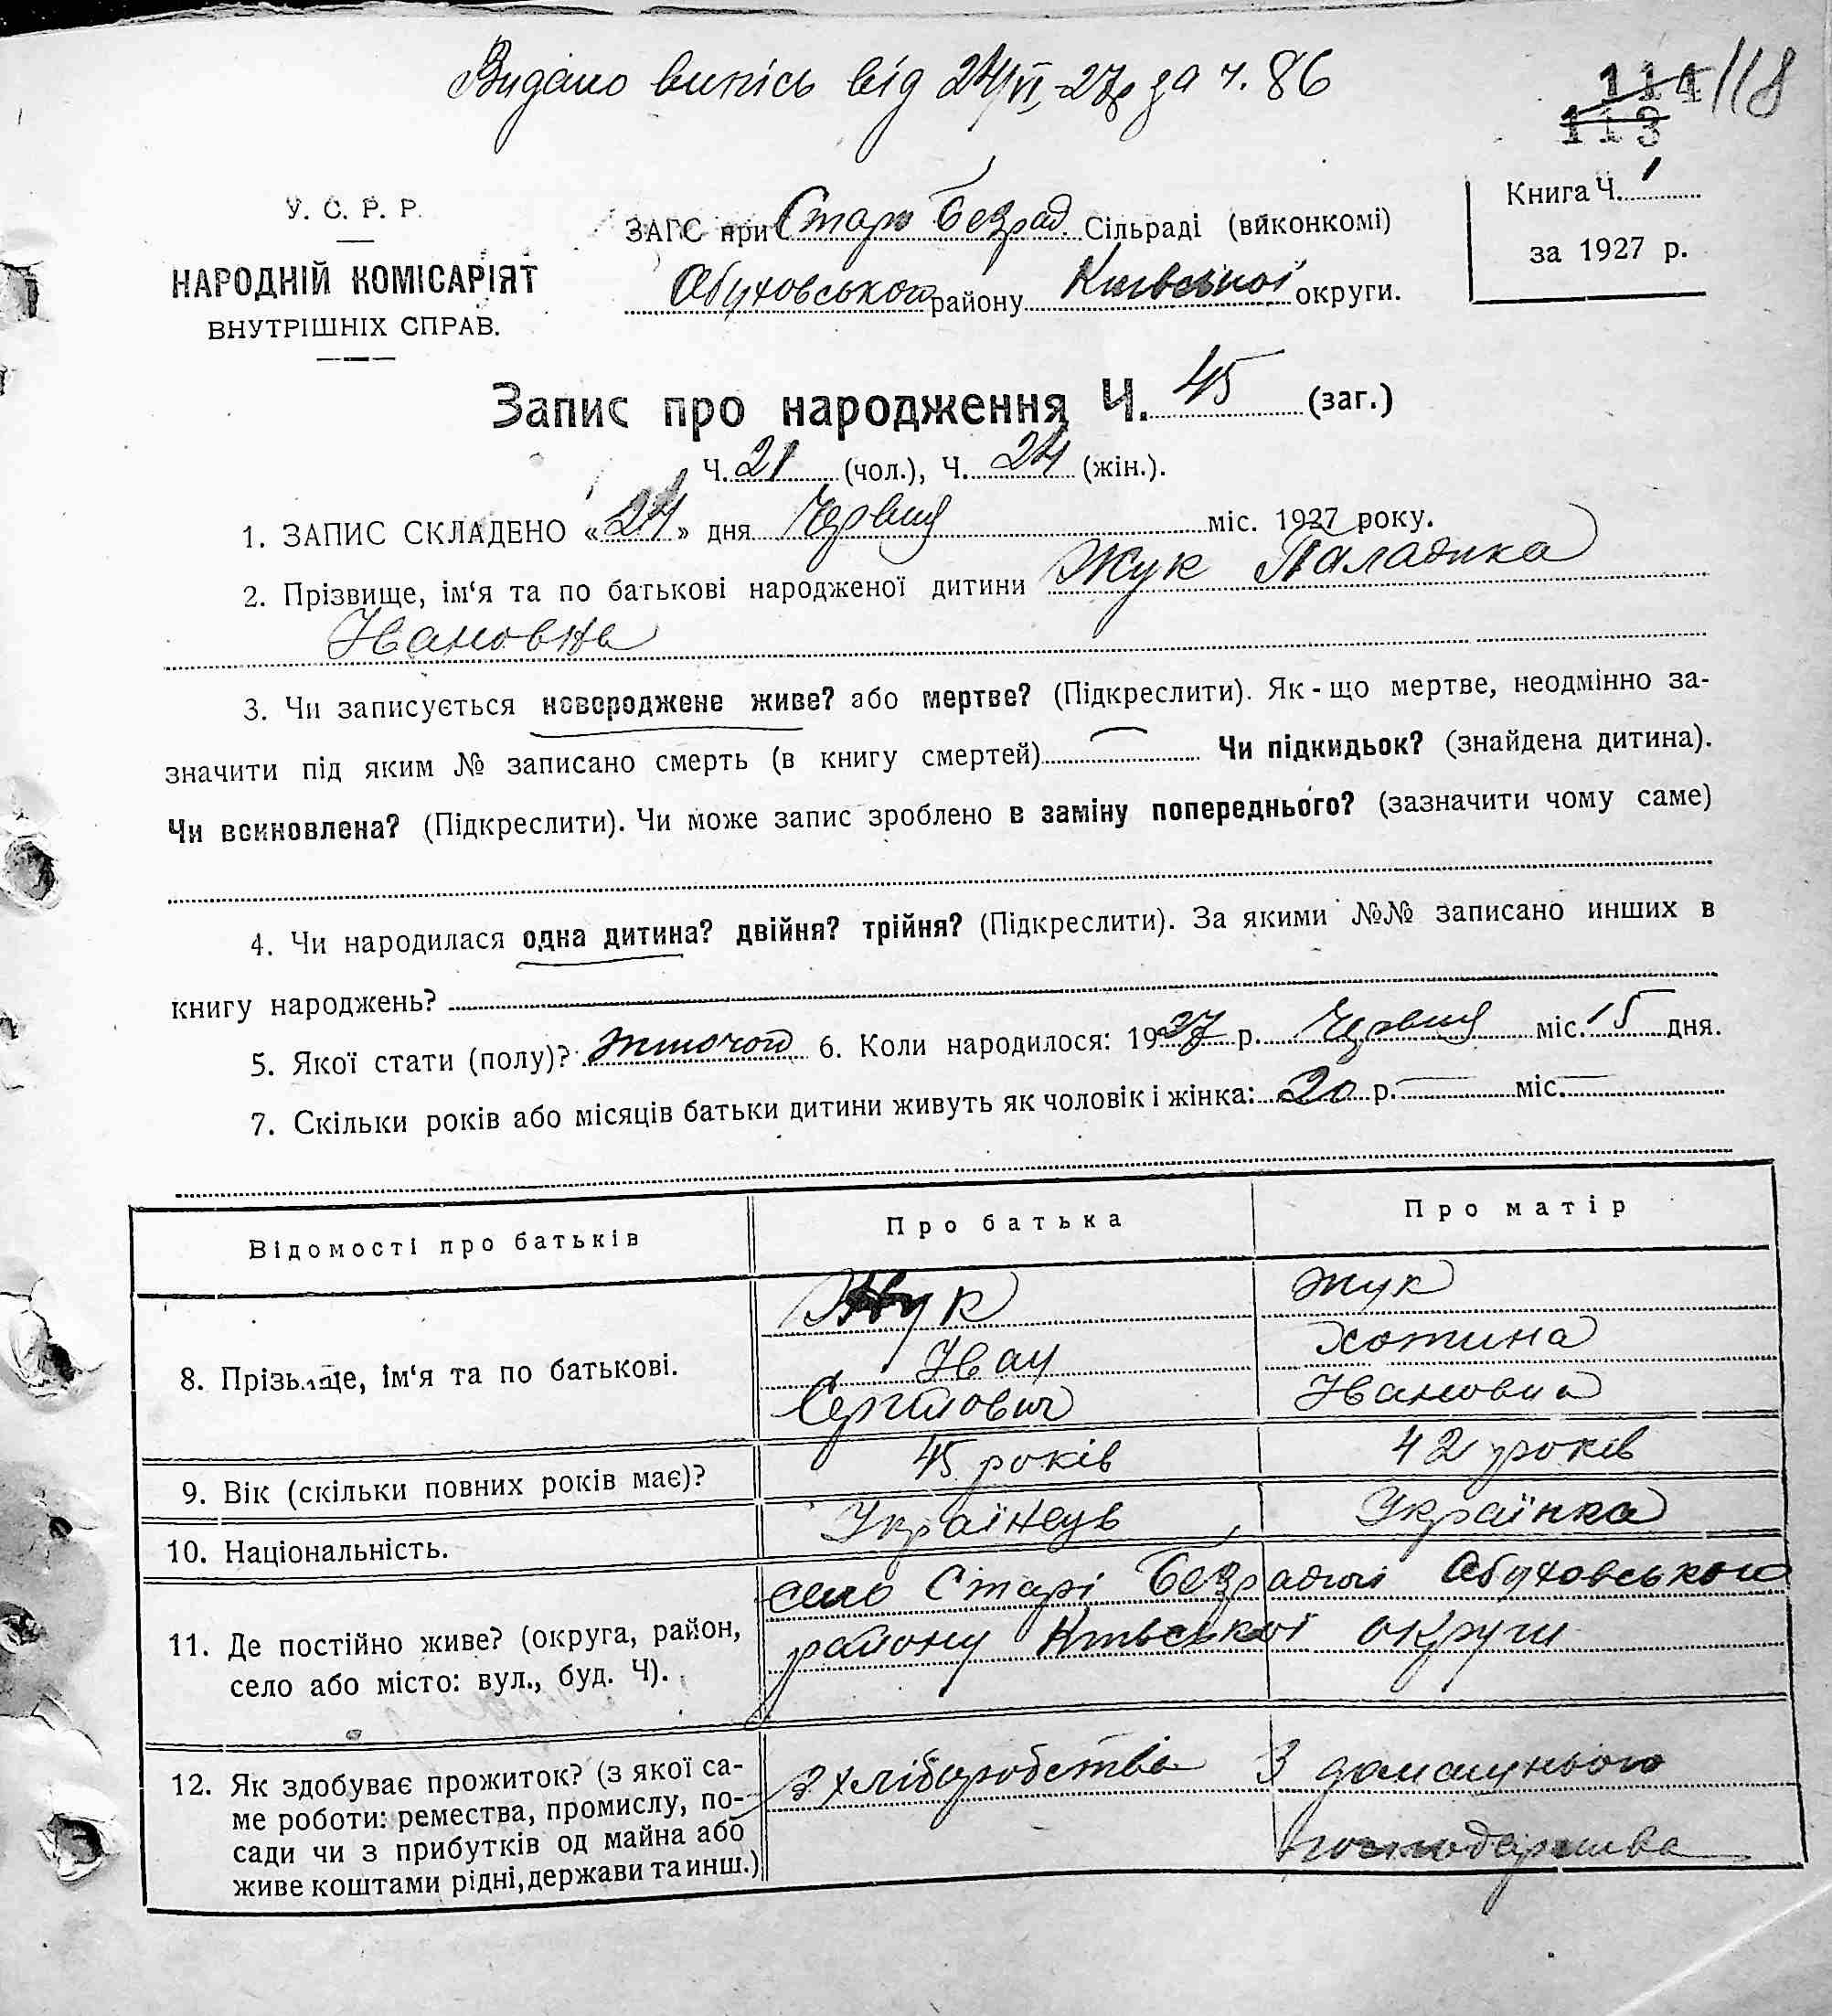 Видано випись від 24/VI-27р за ч. 86
114 118
113
У. С. Р. Р.
НАРОДНІЙ КОМІСАРІЯТ
ВНУТРІШНІХ СПРАВ.
ЗАГС при Старо Безрад. Сільраді (виконкомі)
Обуховського району Київської округи.
Книга Ч. 1
за 1927 р.
Запис про народження Ч. 45 (заг.)
Ч. 21 (чол.), Ч. 24 (жін.).
1. ЗАПИС СКЛАДЕНО «24» дня Червня міс. 1927 року.
2. Прізвище, ім‘я та по батькові народженої дитини Жук Паладика
Івановна
3. Чи записується новороджене живе? або мертве? (Підкреслити). Як-що мертве, неодмінно за-
значити під яким № записано смерть (в книгу смертей) Чи підкидьок? (знайдена дитина).
Чи всиновлена? (Підкреслити). Чи може запис зроблено в заміну попереднього? (зазначити чому саме)
4. Чи народилася одна дитина? двійня? трійня? (Підкреслити). За якими №№ записано инших в
книгу народжень?
5. Якої стати (полу)? жіночой 6. Коли народилося: 1927 р. Червня міс. 15 дня.
7. Скільки років або місяців батьки дитини живуть як чоловік і жінка: 20 р. — міс. —
Відомості про батьків Про батька Про матір
8. Прізвище, ім‘я та по батькові.
Жук Жук
Іван Хотина
Сергійович Івановна
9. Вік (скільки повних років має)? 45 років 42 років
10. Національність. Українець Українка
11. Де постійно живе? (округа, район,
село або місто: вул., буд. Ч).
село Старі Безрадичі Обуховського
району Київської округи
12. Як здобуває прожиток? (з якої са-
ме роботи: ремества, промислу, по-
сади чи з прибутків од майна або
живе коштами рідні, держави та инш.)
З хліборобства З домашнього
господарства